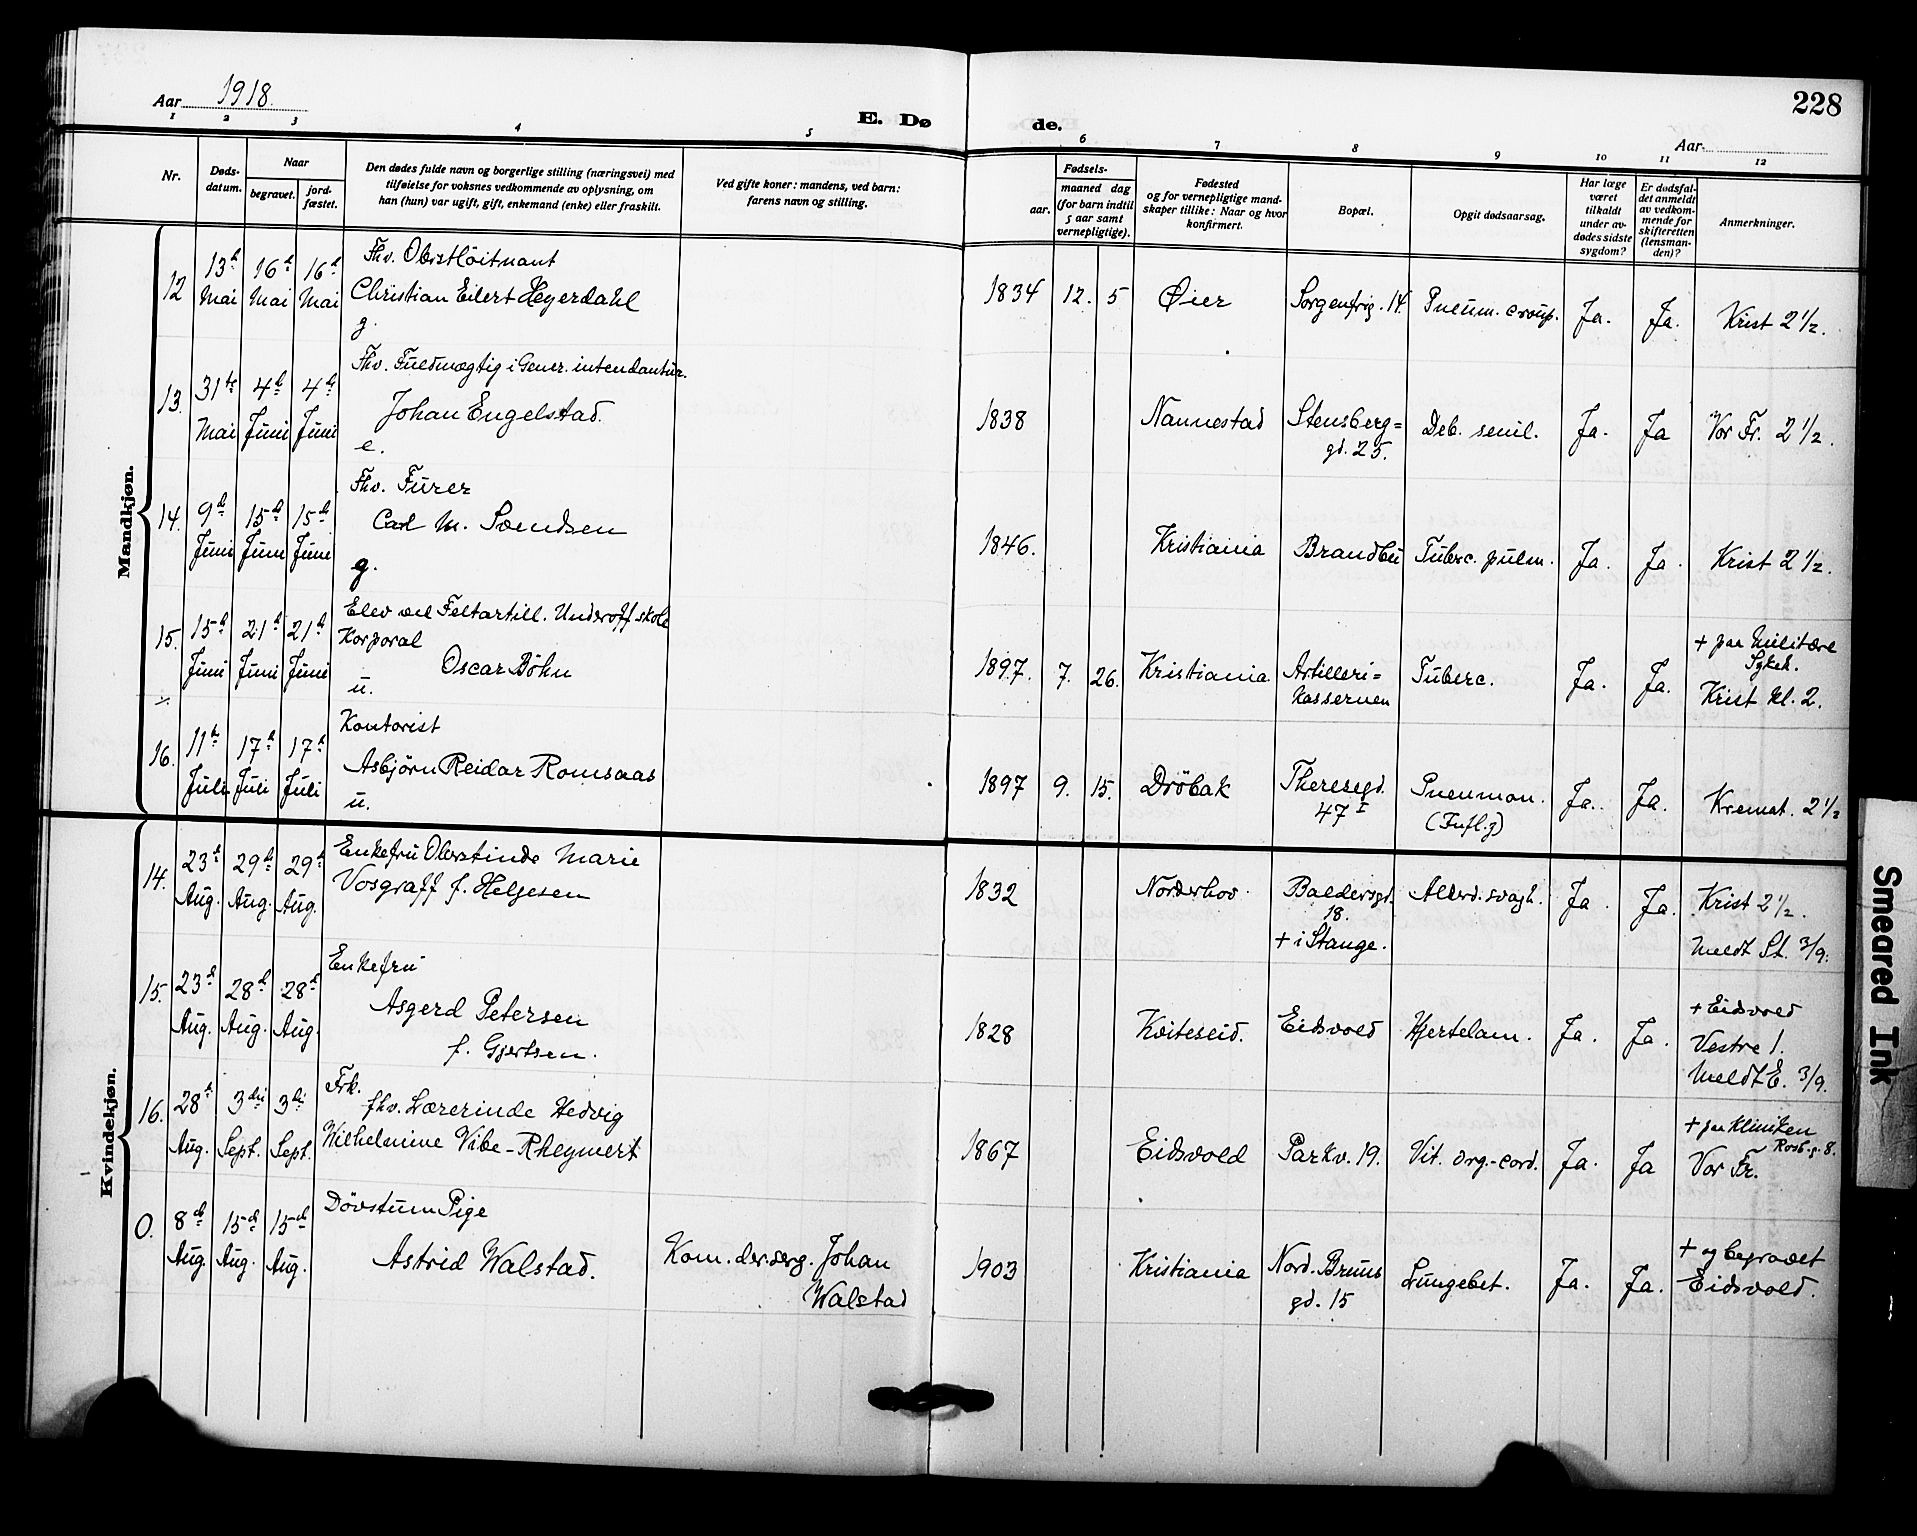 Aar 1918.
E. Døde.
228
Aar
1 2 3 4 5 6 7 8 9 10 11 12
Nr.
Døds-
datum.
Naar
begravet.
jord-
fæstet.
Den dødes fulde navn og borgerlige stilling (næringsvei) med
tilføielse for voksnes vedkommende av oplysning, om
han (hun) var ugift, gift, enkemand (enke) eller fraskilt.
Ved gifte koner: mandens, ved barn:
farens navn og stilling.
Fødsels-
aar.
maaned dag
(for barn indtil
5 aar samt
vernepligtige).
Fødested
og for vernepligtige mand-
skaper tillike: Naar og hvor
konfirmert.
Bopæl.
Opgit dødsaarsag.
Har læge
været
tilkaldt
under av-
dødes sidste
sygdom?
Er dødsfal-
det anmeldt
av vedkom-
mende for
skifteretten
(lensman-
den)?
Anmerkninger.
Mandkjøn.
12 13d Mai 16d Mai 16d Mai
Fhv. Oberstløitnant
Christian Eilert Heyerdahl
g.
1834 12. 5 Øier Sorgenfrig. 14. Pneum. croup. Ja. Ja. Krist 2 1/2.
13. 31te Mai 4d Juni 4d Juni
Fhv. Fuldmægtig i Gener. intendantur.
Johan Engelstad.
e.
1838 Nannestad Stensberg=
gd. 25.
Deb. senil. Ja. Ja Vor Fr. 2 1/2.
14. 9d Juni 15d Juni 15d Juni
Fhv. Furer
Carl M. Svendsen
g.
1846. Kristiania Brandbu Tuberc. pulm. Ja. Ja. Krist 2 1/2.
15. 15d Juni 21d Juni 21d Juni
Elev ved Feltartill. Underoff skole
Korporal
Oscar Böhn
u.
1897. 7. 26. Kristiania Artilleri=
kassernen
Tuberc. Ja. Ja.
+ paa Militære
Sykeh.
Krist kl. 2.
16. 11te Juli 17d Juli 17d Juli
Kontorist
Asbjörn Reidar Romsaas
u.
1897 9. 15. Dröbak Theresegd.
47 I
Pneumon.
(Infl.z)
Ja. Ja. Kremat. 2 1/2
Kvindekjøn.
14. 23d Aug. 29d Aug. 29d Aug.
Enkefru Oberstinde Marie
Vosgraff f. Helgesen
1832 Norderhov. Baldersgd.
18.
+ i Stange.
Alderd. svagh. Ja. Ja.
Krist 2 1/2.
Meldt St. 3/9.
15. 23d Aug. 28d Aug. 28d Aug.
Enkefru
Asgerd Petersen
f. Gjertsen.
1828 Kviteseid. Eidsvold Hjertelam. Ja. Ja.
+ Eidsvold
Vestre 1.
Meldt E. 3/9.
16. 28d Aug. 3die Sept. 3die Sept.
Frk.
fhv. Lærerinde Hedvig
Wilhelmine Vibe-Rheymert
1867 Eidsvold Parkv. 19. Vit. org.-cord. Ja. Ja
+ paa Kliniken
Rosb.g. 8.
Vor Fr.
0. 8d Aug. 15d Aug. 15d Aug.
Dövstum Pige
Astrid Walstad.
Kom. der. serg. Johan
Walstad
1903 Kristiania Nord. Bruns
gd. 15
Lungebet. Ja. Ja.
+ og begravet
Eidsvold.
Smeared Ink